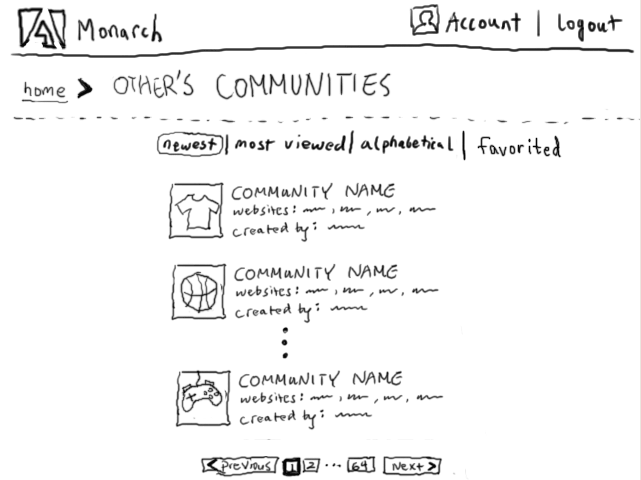 Monarch
Account | logout
home > OTHER'S COMMUNITIES
newest | most viewed | alphabetical | favorited
COMMUNITY NAME
websites:
created by:
COMMUNITY NAME
websites:
created by:
COMMUNITY NAME
websites:
created by:
< Previous 1 2 ... 64 Next >